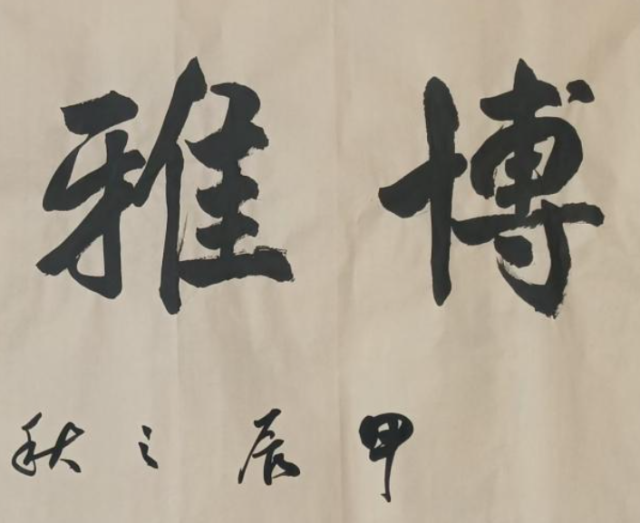 博雅
甲辰之秋